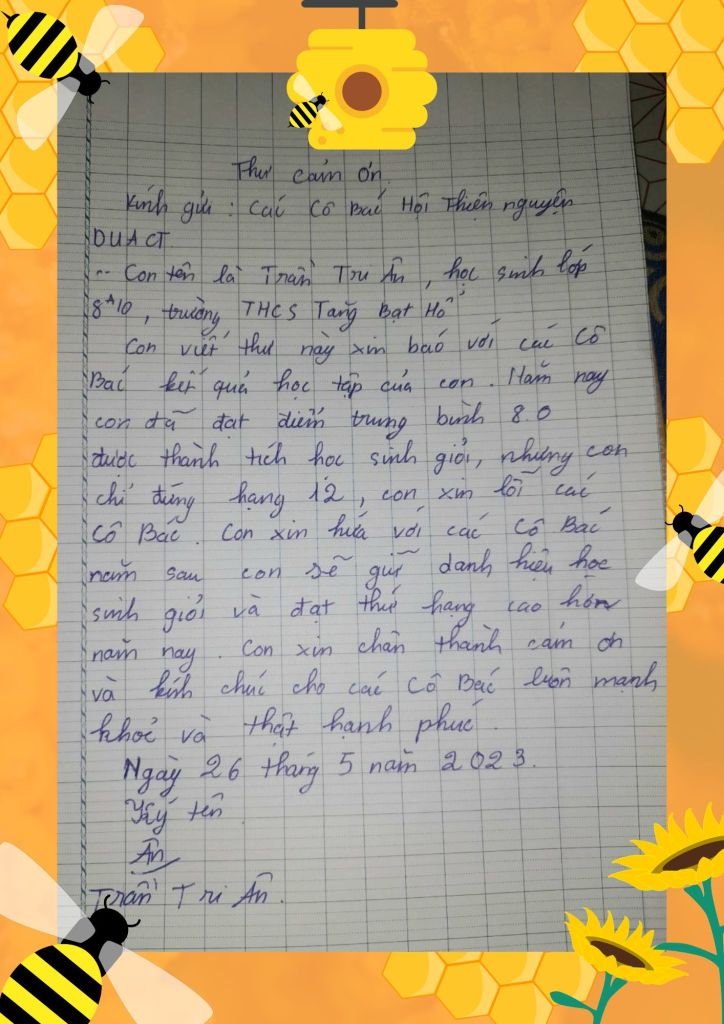 Thư cảm ơn
Kính gửi : Các Cô Bác Hội Thiện nguyện
DUACT.
-- Con tên là Trần Tri Ân, học sinh lớp
8A10, trường THCS Tăng Bạt Hổ
Con viết thư này xin báo với các Cô
Bác kết quả học tập của con. Năm nay
con đã đạt điểm trung bình 8.0
được thành tích học sinh giỏi, nhưng con
chỉ đứng hạng 12, con xin lỗi các
Cô Bác. Con xin hứa với các Cô Bác
năm sau con sẽ giữ danh hiệu học
sinh giỏi và đạt thứ hạng cao hơn
năm nay. Con xin chân thành cảm ơn
và kính chúc cho các Cô Bác luôn mạnh
khoẻ và thật hạnh phúc.
Ngày 26 tháng 5 năm 2023.
Ký tên
Ân
Trần Tri Ân.